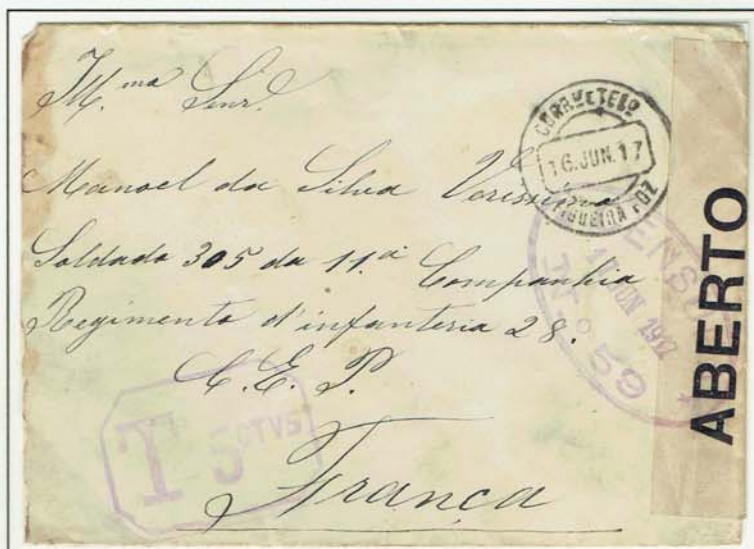 Il.ma Snr.
Manoel da Silva Verissimo
Soldado 305 da 11.a Companhia
Regimento d'infanteria 28.
C. E. P.
França
CORR.º E TELº
16. JUN. 17
FIGUEIRA FOZ
CENSURA
JUN 1917
Nº 59
ABERTO
T 5 CTVS